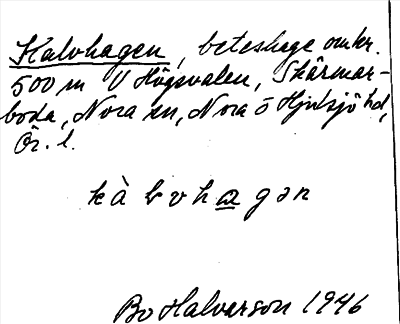 Kalvhagen, beteshage omkr.
500 m V Högsvalen, Skärmar-
boda, Nora sn, Nora o Hjulsjö hd,
Ör. l.
kàlvhagən
Bo Halvarson 1946